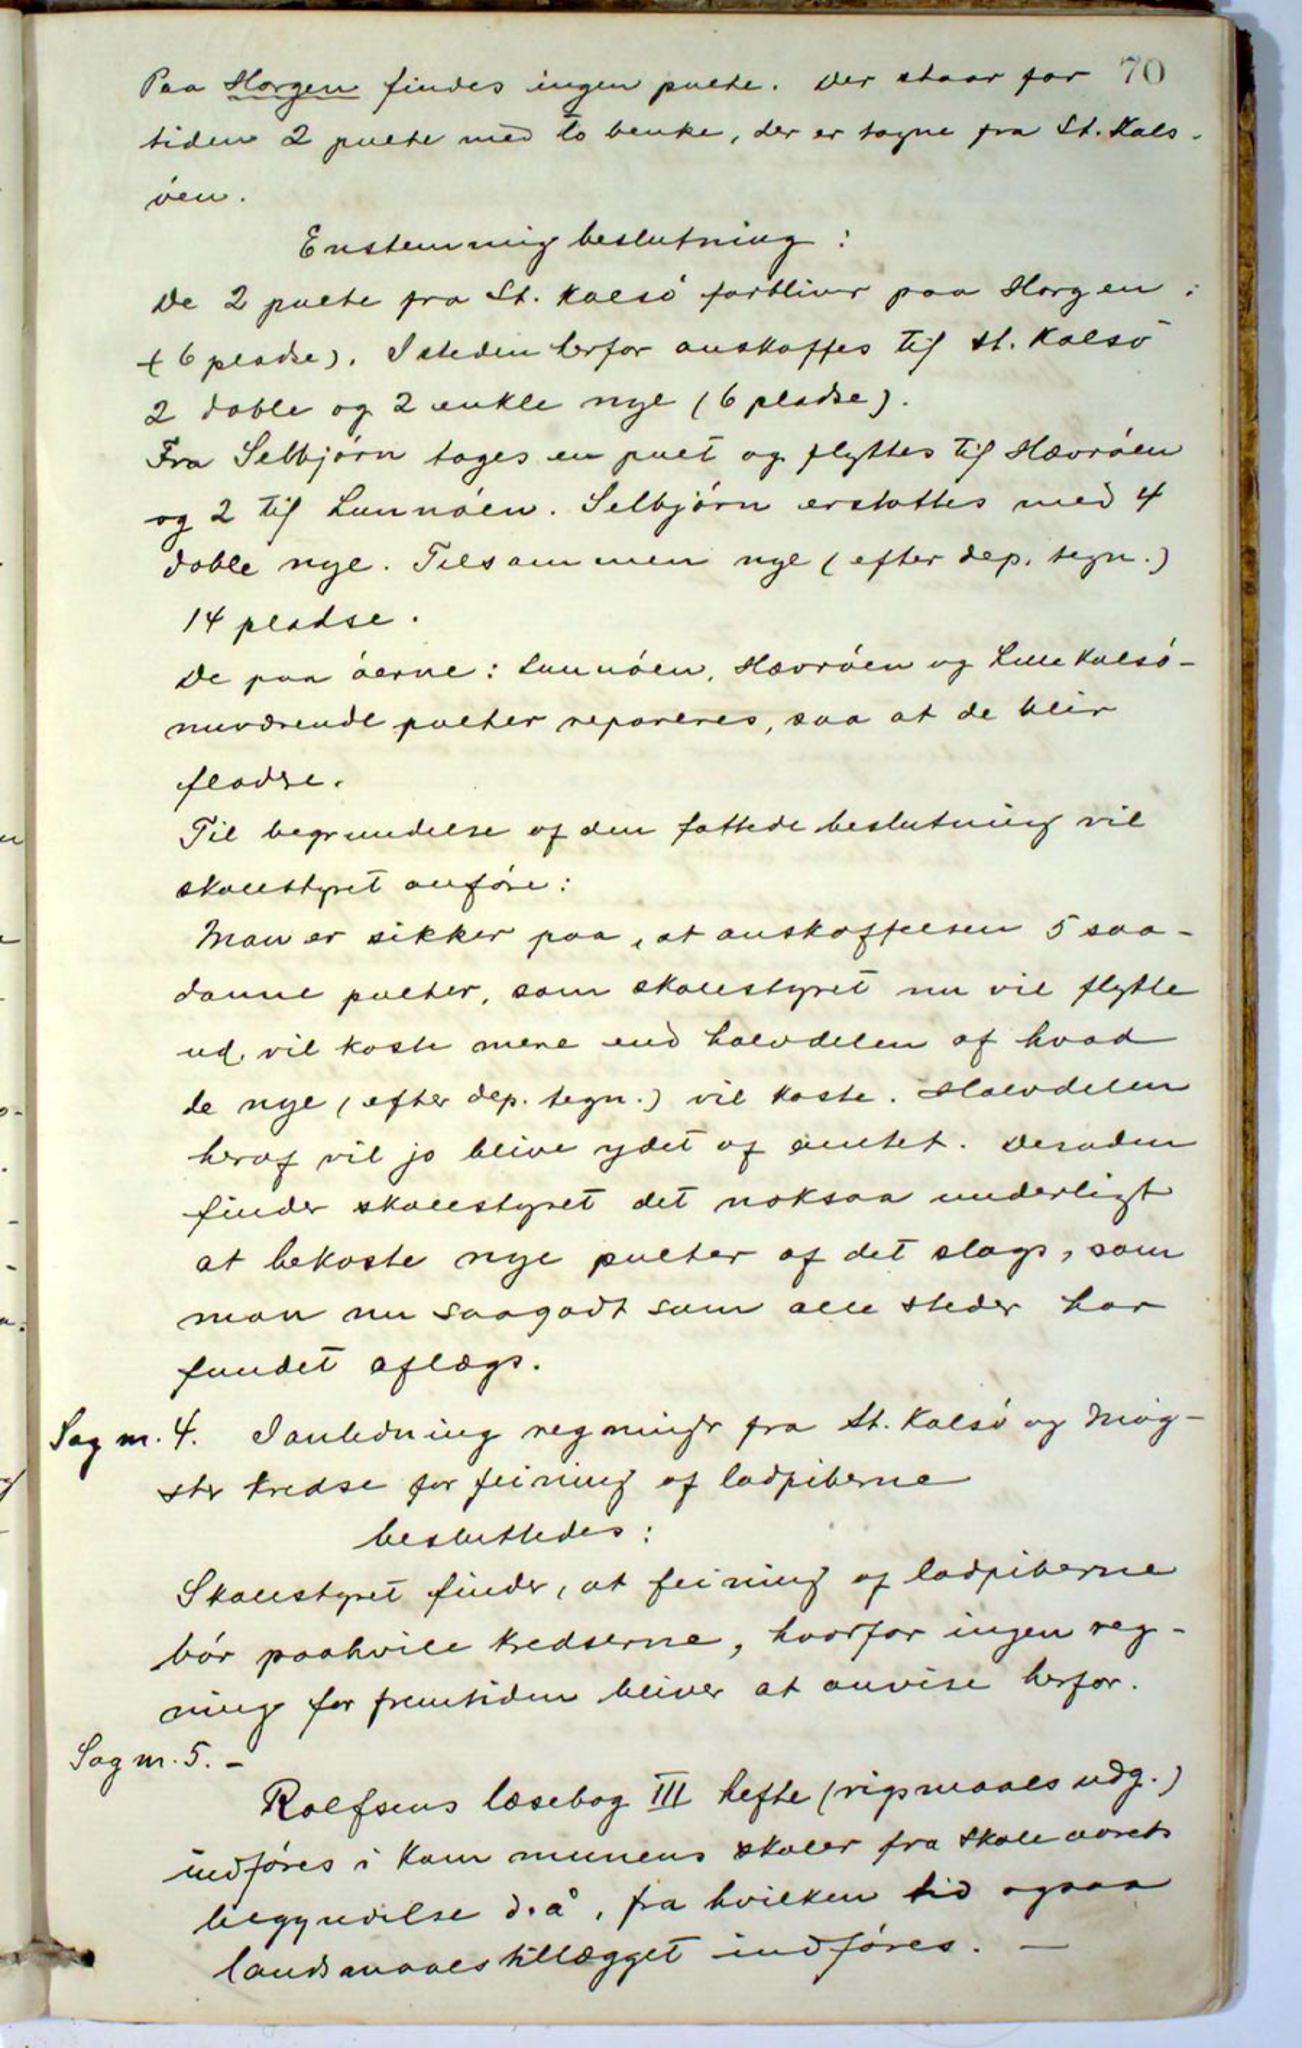 70
Paa Horgen findes ingen pulte. Der staar for
tiden 2 pulte med to benke, der er tagne fra St. Kals-
öen.
Enstemmig beslutning:
De 2 pulte fra St. Kalsö forbliver paa Horgen:
(6 pladse). Isteden herfor anskaffes til St. Kalsö
2 doble og 2 enkle nye (6 pladse).
Fra Selbjörn tages en pult og flyttes til Hævröen
og 2 til Lunnöen. Selbjörn erstattes med 4
doble nye. Tilsammen nye (efter dep. tegn.)
14 pladse.
De paa öerne: Lunnöen, Hævröen og Lille Kalsö-
nuværende pulter repareres, saa at de blir
fladse.
Til begrundelse af den fattede beslutning vil
skolestyret anföre:
Man er sikker paa, at anskaffelsen 5 saa-
danne pulter, som skolestyret nu vil flytte
ud, vil koste mere end halvdelen af hvad
de nye (efter dep. tegn.) vil koste. Halvdelen
heraf vil jo blive ydet af amtet. Desuden
finder skolestyret det noksaa underligt
at bekoste nye pulter af det slags, som
man nu saagodt som alle steder har
fundet aflægs.
Sag nr. 4. I anledning regninger fra St. Kalsö og Mög-
ster kredse for feining af ladpiberne
besluttedes:
Skolestyret finder, at feining af ladpiberne
bör paahvile kredserne, hvorfor ingen reg-
ning for fremtiden bliver at anvise herfor.
Sag nr. 5. -
Rolfsens læsebog III hefte (rigsmaals udg.)
indföres i kommunens skoler fra skoleaarets
begyndelse d. å, fra hvilken tid ogsaa
landsmaalstillægget indföres. -